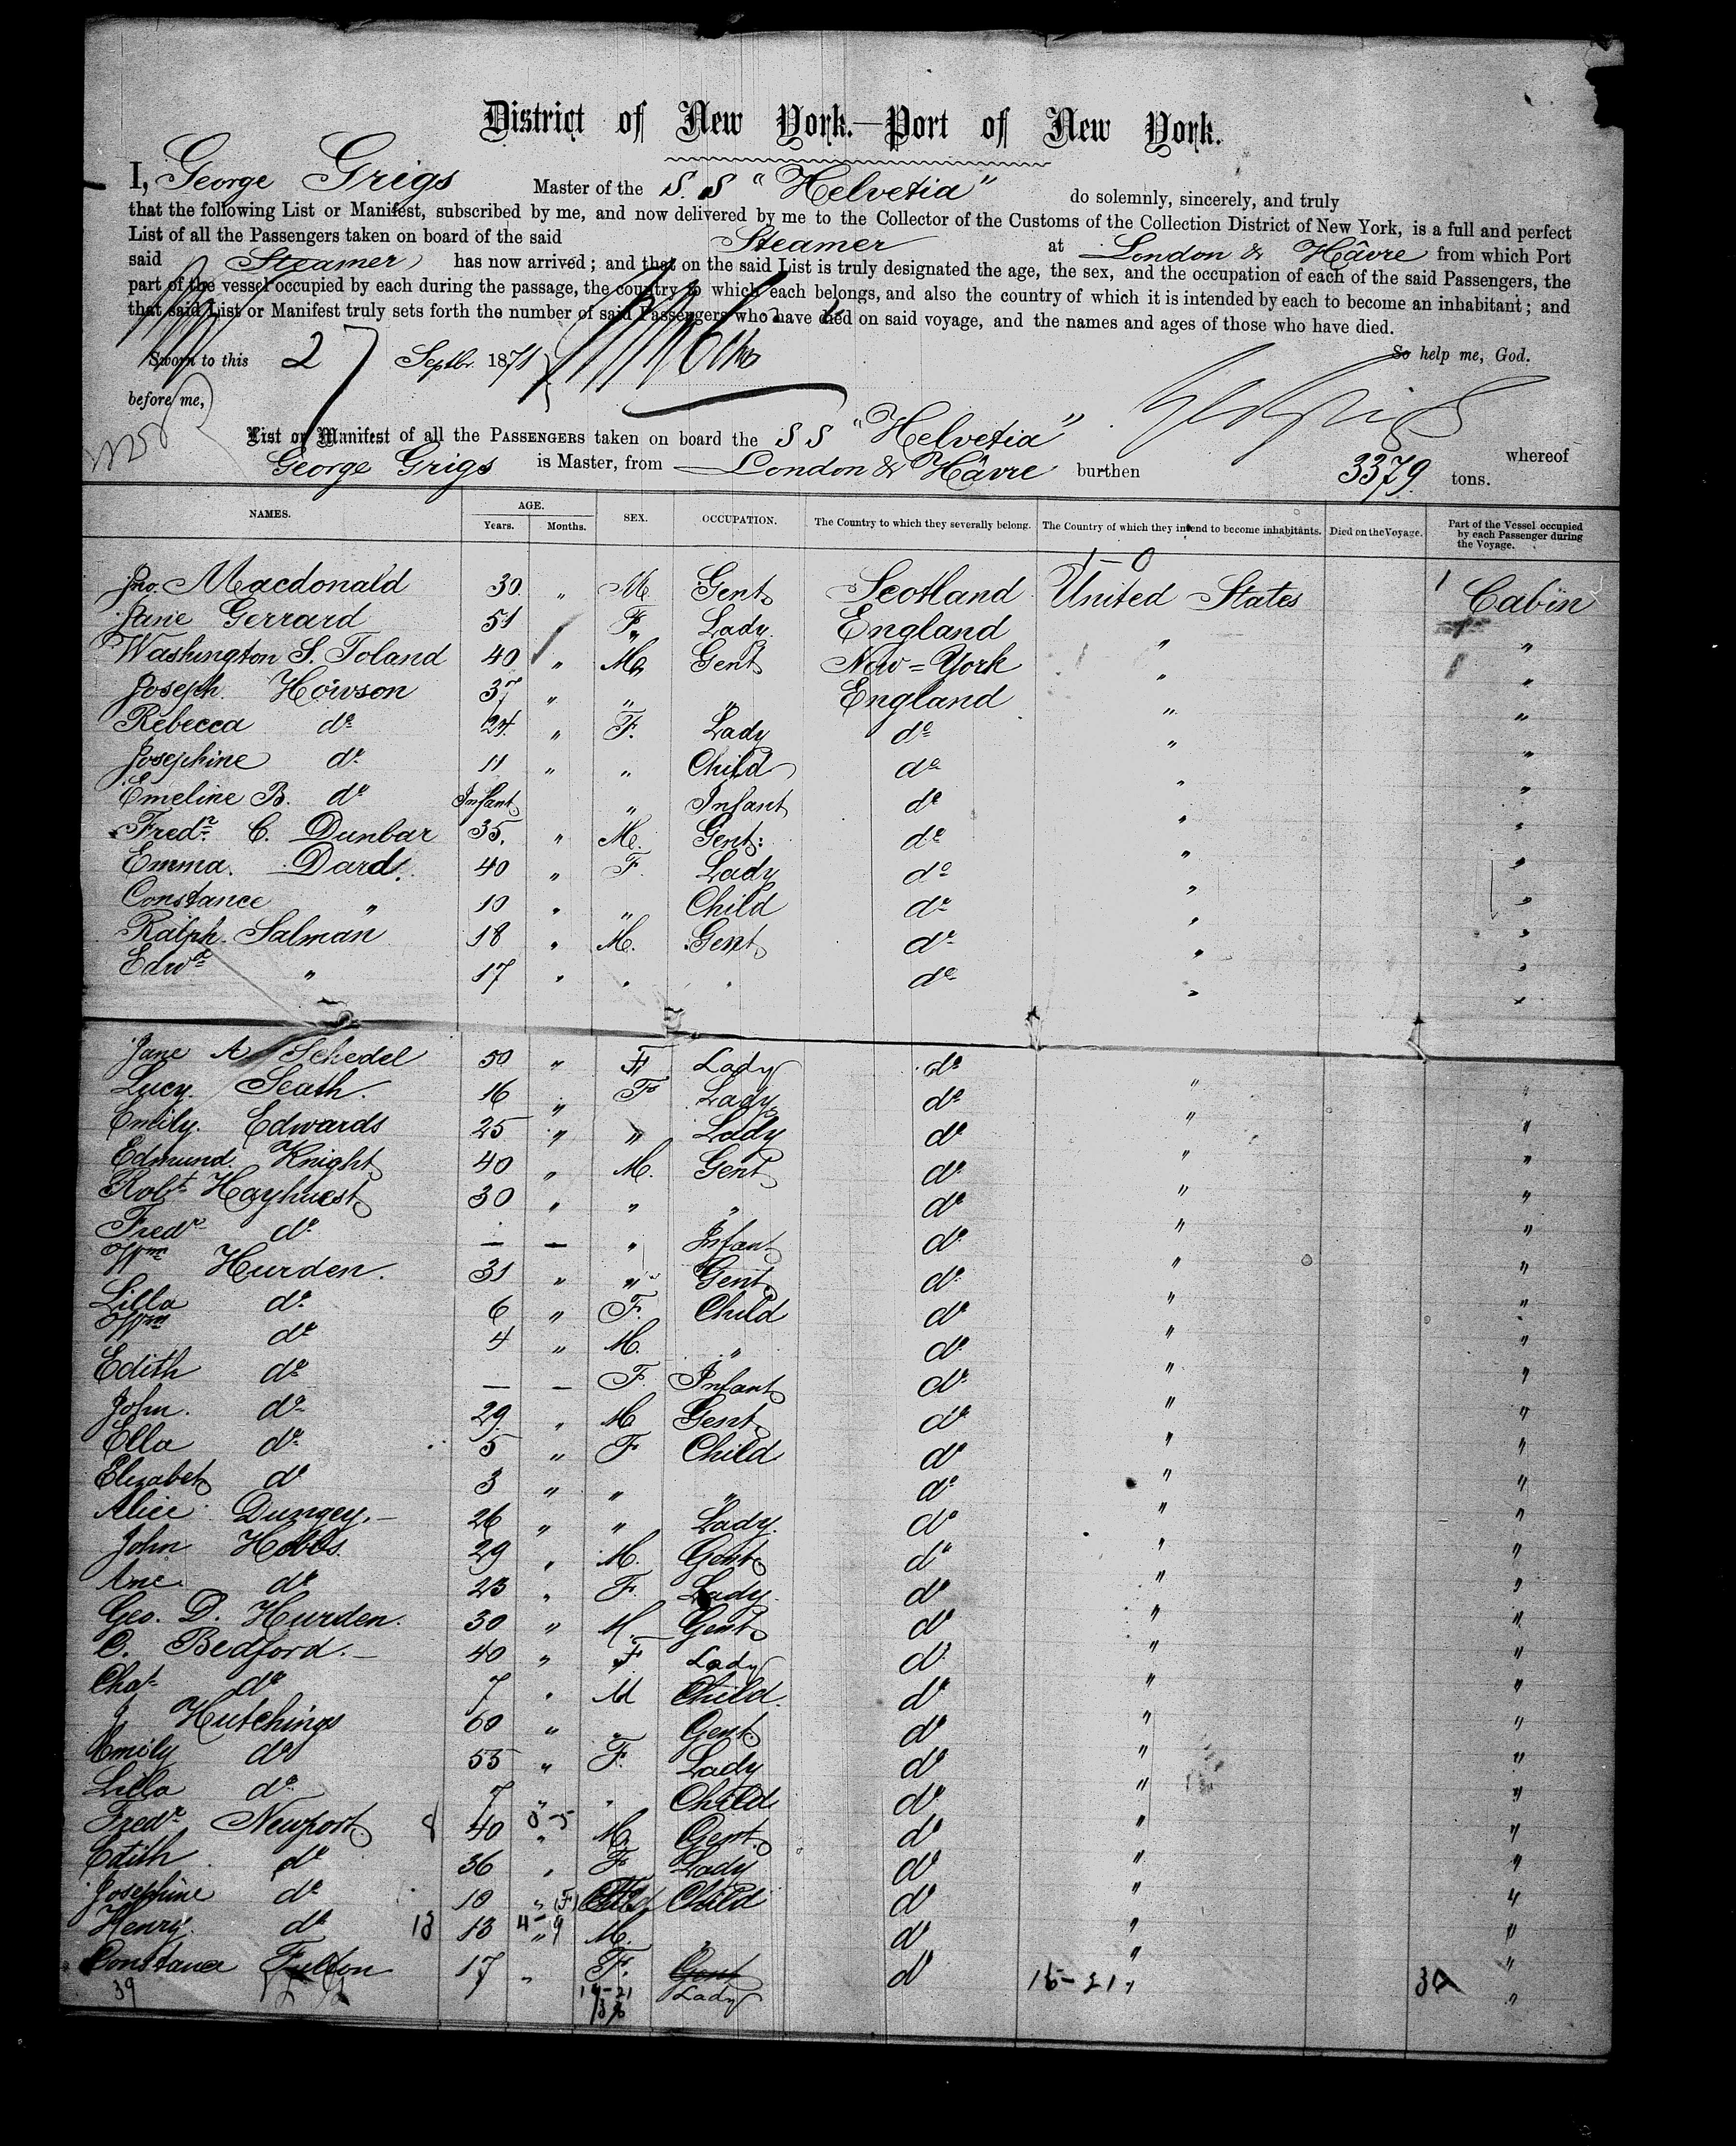 District of New York.—Port of New York.
I, George Grigs Master of the S. S "Helvetia" do solemnly, sincerely, and truly
that the following List or Manifest, subscribed by me, and now delivered by me to the Collector of the Customs of the Collection District of New York, is a full and perfect
List of all the Passengers taken on board of the said Steamer at London & Hâvre from which Port
said Steamer has now arrived; and that on the said List is truly designated the age, the sex, and the occupation of each of the said Passengers, the
part of the vessel occupied by each during the passage, the country to which each belongs, and also the country of which it is intended by each to become an inhabitant; and
that said List or Manifest truly sets forth the number of said Passengers who have died on said voyage, and the names and ages of those who have died.
So help me, God.
Sworn to this 27 Septbr. 1871
before me,
List or Manifest of all the PASSENGERS taken on board the S S "Helvetia" whereof
George Grigs is Master, from London & Hâvre burthen 3379. tons.
NAMES. AGE. Years. Months. SEX. OCCUPATION. The Country to which they severally belong. The Country of which they intend to become inhabitants. Died on the Voyage. Part of the Vessel occupied by each Passenger during the Voyage.
Jno. Macdonald 30 " M. Gent Scotland United States Cabin
Jane Gerrard 51 F. Lady. England " "
Washington S. Toland 40 " M. Gent New=York " "
Joseph Howson 37 " " " England " "
Rebecca do 24 " F. Lady do " "
Josephine do 11 " " Child do " "
Emeline B. do Infant " Infant do " "
Fredr. C. Dunbar 35. " M. Gent: do " "
Emma. Dard. 40 " F. Lady do " "
Constance " 10 " " Child do " "
Ralph. Salman 18 " M. Gent do " "
Edwd " 17 " " " do " "
Jane A Schedel 50 " F Lady do " "
Lucy. Seath. 16 " F Lady do " "
Emily. Edwards 25 " " Lady do " "
Edmund. Knight 40 " M. Gent do " "
Robt Hayhurst 30 " " " do " "
Fredr do — — " Infant do " "
Wm Hurden. 31 " " Gent do " "
Lilla do 6 " F. Child do " "
Wm do 4 " M. " do " "
Edith do — — F. Infant do " "
John. do 29. " M Gent do " "
Ella do 5 " F Child do " "
Elizabeth do 3 " " " do " "
Alice Dungey.— 26 " " Lady. do " "
John Hobbs. 29 " M. Gent do " "
Ane. do 23 " F. Lady. do " "
Geo. D. Hurden. 30 " M. Gent do " "
C. Bedford.— 40 " F Lady do " "
Chas do 7 " M Child. do " "
J Hutchings 60 " " Gent do " "
Emily do 55 " F. Lady do " "
Lilla do 7 " " Child do " "
Fredr Newport 40 " M. Gent. do " "
Edith do 36 " F Lady do " "
Josephine do 10 " (F) Child Child do " "
Henry. do 13 " M. " do " "
Constance Fulton 17 " F. Gent Lady do " "
39 16-21